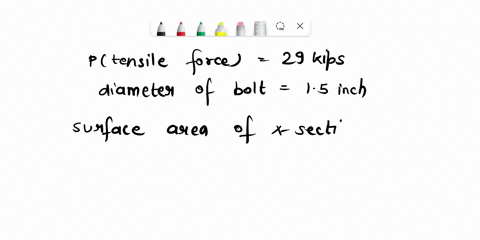 P(tensile force) = 29 kips
diameter of bolt = 1.5 inch
surface area of x-secti